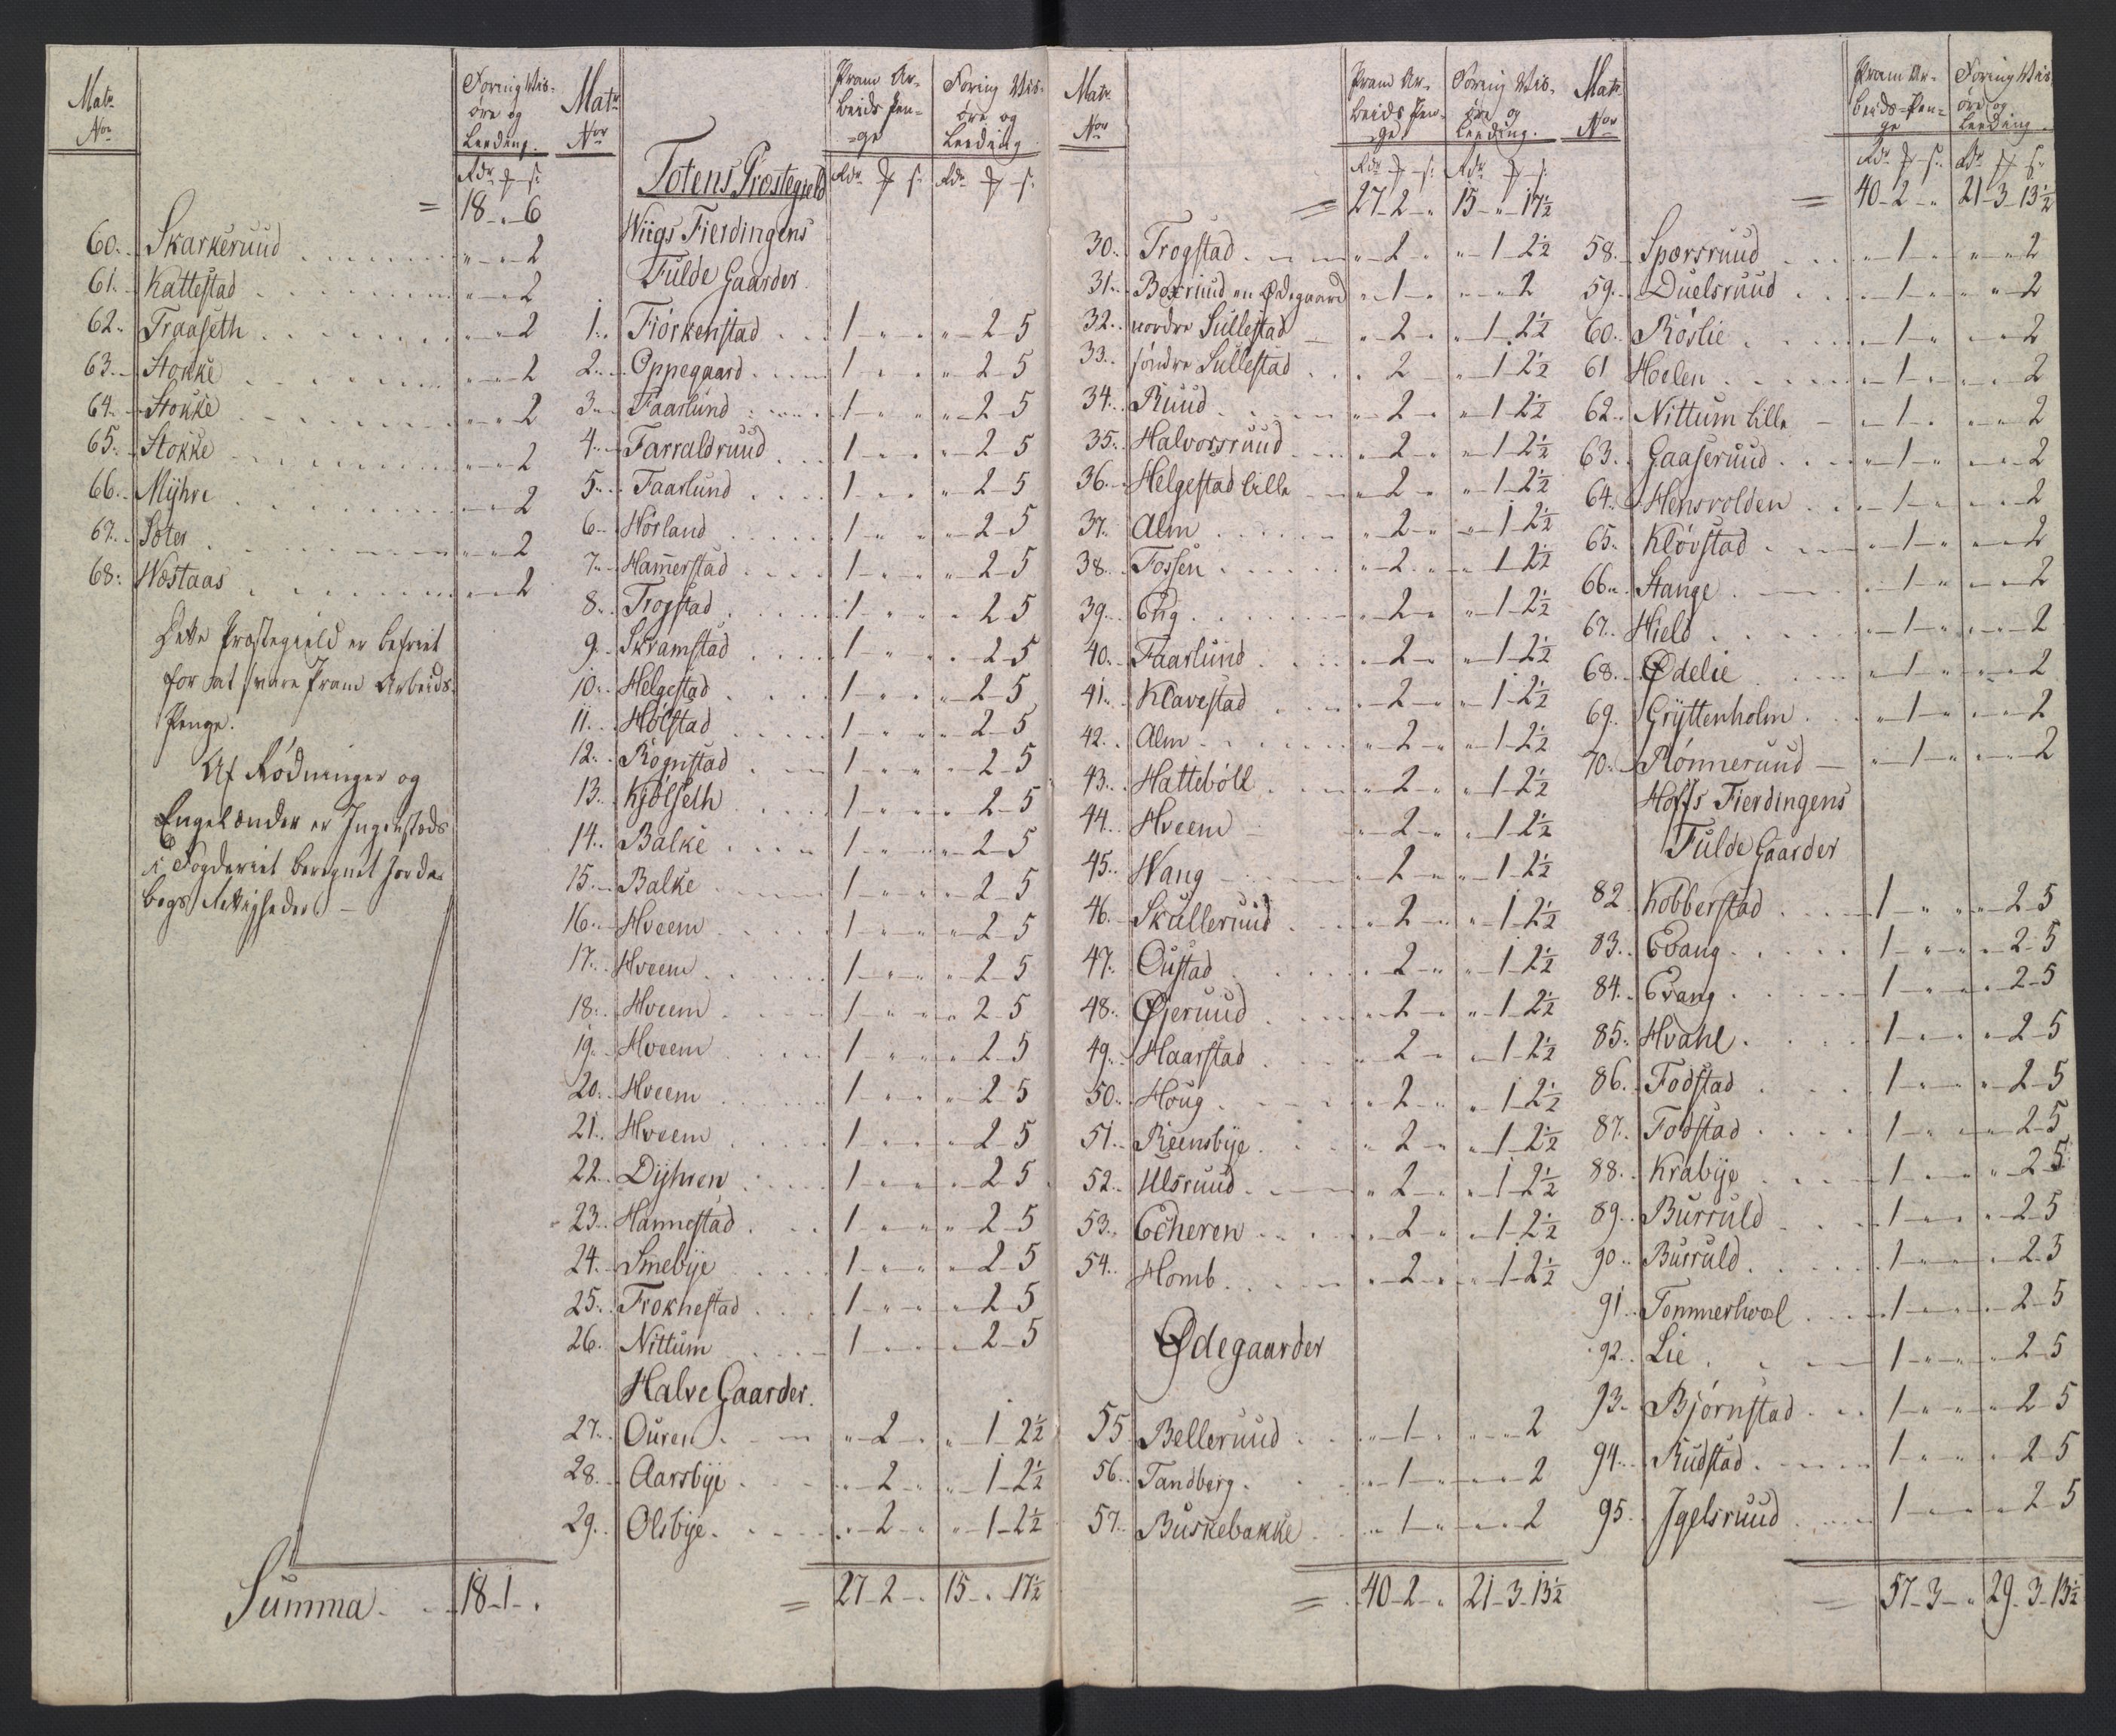 Matr
No
Foring Vis-
øre og
Leeding.
Rdr ꝑ s:
= 18 " 6
60. Skarkeruud " " 2
61. Kattestad " " 2
62. Traaseth " " 2
63. Stokke " " 2
64. Stokke " " 2
65. Stokke " " 2
66. Myhre " " 2
67. Sæter " " 2
68. Wæstaas " " 2
Dette Præstegield er befriet
for at svare Pram Arbeids-
Penge.
Af Rödninger og
Engelænder er Ingenstæds
i Fogderiet beregnet Jorde-
bogs Rettigheder. —
Summa 18 1 "
Matr
No
Totens Præstegield
Pram Ar-
beids Pen-
ge
Foring Vis-
øre og
Leeding
Rdr ꝑ s: Rdr ꝑ s:
Wiigs Fierdingens
Fulde Gaarder
1. Fiörkenstad 1 " " " 2 5
2. Oppegaard 1 " " " 2 5
3. Faarlund 1 " " " 2 5
4. Farraldruud 1 " " " 2 5
5. Faarlund 1 " " " 2 5
6. Hörland 1 " " " 2 5
7. Hamerstad 1 " " " 2 5
8. Trogstad 1 " " " 2 5
9. Skramstad 1 " " " 2 5
10. Helgestad 1 " " " 2 5
11. Holstad 1 " " " 2 5
12. Rognstad 1 " " " 2 5
13. Kjölseth 1 " " " 2 5
14. Balke 1 " " " 2 5
15. Balke 1 " " " 2 5
16. Hveem 1 " " " 2 5
17. Hveem 1 " " " 2 5
18. Hveem 1 " " " 2 5
19. Hveem 1 " " " 2 5
20. Hveem 1 " " " 2 5
21. Hveem 1 " " " 2 5
22. Dyhren 1 " " " 2 5
23. Hannestad 1 " " " 2 5
24. Smebye 1 " " " 2 5
25. Froknestad 1 " " " 2 5
26. Nittum 1 " " " 2 5
Halve Gaarder.
27. Ouren " 2 " " 1 2½
28. Aarsbye " 2 " " 1 2½
29. Olsbye " 2 " " 1 2½
= 27 2 " 15 " 17½
Matr
No
Pram Ar-
beids Pen-
ge
Foring Vis-
øre og
Leeding.
Rdr ꝑ s: Rdr ꝑ s:
= 27 2 " 15 " 17½
30. Trogstad " 2 " " 1 2½
31. Boxruud en Ødegaard " 1 " " " 2
32. nordre Sullestad " 2 " " 1 2½
33. söndre Sullestad " 2 " " 1 2½
34. Ruud " 2 " " 1 2½
35. Halvorsruud " 2 " " 1 2½
36. Helgestad lille " 2 " " 1 2½
37. Alm " 2 " " 1 2½
38. Fossen " 2 " " 1 2½
39. Eng " 2 " " 1 2½
40. Faarlund " 2 " " 1 2½
41. Klavestad " 2 " " 1 2½
42. Alm " 2 " " 1 2½
43. Hatteböll " 2 " " 1 2½
44. Hveem " 2 " " 1 2½
45. Wang " 2 " " 1 2½
46. Skulleruud " 2 " " 1 2½
47. Oustad " 2 " " 1 2½
48. Øjeruud " 2 " " 1 2½
49. Haarstad " 2 " " 1 2½
50. Houg " 2 " " 1 2½
51. Reensbye " 2 " " 1 2½
52. Ulsruud " 2 " " 1 2½
53. Echeren " 2 " " 1 2½
54. Homb " 2 " " 1 2½
Ødegaarder
55 Belleruud " 1 " " " 2
56. Tandberg " 1 " " " 2
57. Buskebakke " 1 " " " 2
= 40 2 " 21 3 13½
Matr
No
Pram Ar-
beids-Pen-
ge
Foring Vis
øre og
Leeding.
Rdr ꝑ s: Rdr ꝑ s:
= 40 2 " 21 3 13½
58. Sporsruud " 1 " " " 2
59. Duelsruud " 1 " " " 2
60. Röslie " 1 " " " 2
61 Hoelen " 1 " " " 2
62. Nittum lille " 1 " " " 2
63. Gaaseruud " 1 " " " 2
64. Hensvolden " 1 " " " 2
65. Klövstad " 1 " " " 2
66. Stange " 1 " " " 2
67. Hield " 1 " " " 2
68. Ødelie " 1 " " " 2
69. Gryttenholm " 1 " " " 2
70. Rönneruud " 1 " " " 2
Hoffs Fierdingens
Fulde Gaarder
82. Kobberstad 1 " " " 2 5
83. Evang 1 " " " 2 5
84. Evang 1 " " " 2 5
85. Hvahl 1 " " " 2 5
86. Fodstad 1 " " " 2 5
87. Fodstad 1 " " " 2 5
88. Krabye 1 " " " 2 5
89. Burruld 1 " " " 2 5
90. Burruld 1 " " " 2 5
91. Tommerhoel 1 " " " 2 5
92. Lie 1 " " " 2 5
93. Bjørnstad 1 " " " 2 5
94. Rudstad 1 " " " 2 5
95. Igelsruud 1 " " " 2 5
= 57 3 " 29 3 13½